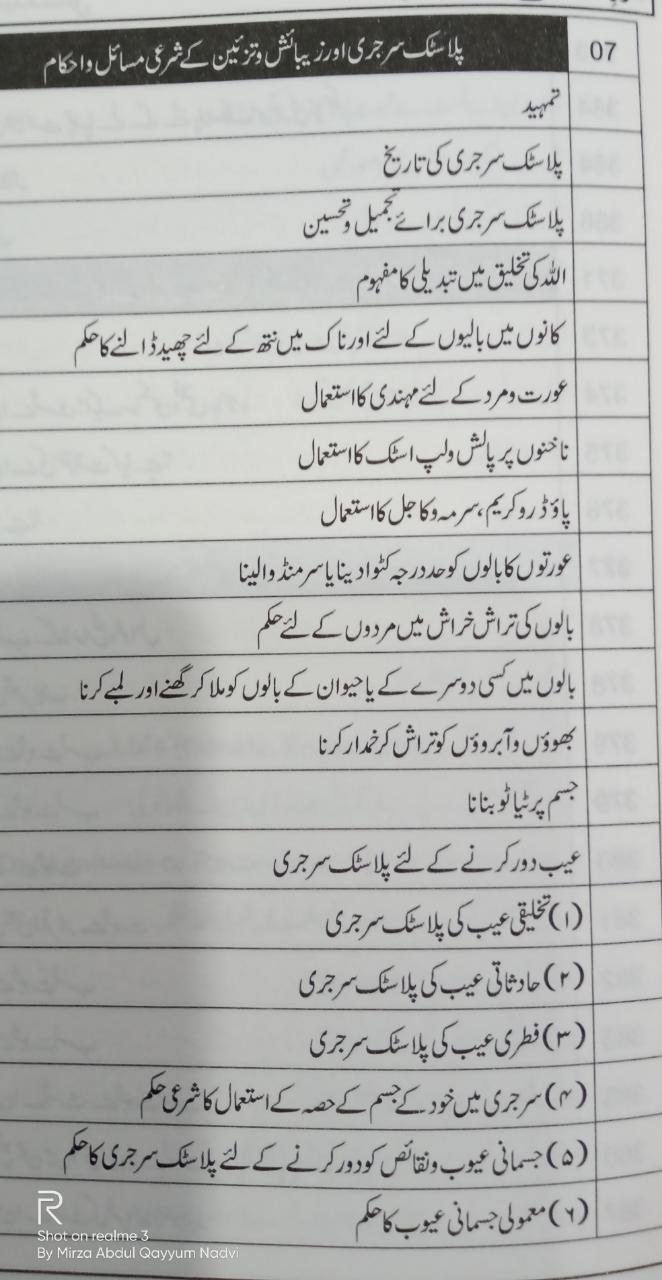 07 پلاسٹک سرجری اور زیبائش و تزئین کے شرعی مسائل و احکام
تمہید
پلاسٹک سرجری کی تاریخ
پلاسٹک سرجری برائے تجمیل و تحسین
اللہ کی تخلیق میں تبدیلی کا مفہوم
کانوں میں بالیوں کے لئے اور ناک میں نتھ کے لئے چھید ڈالنے کا حکم
عورت و مرد کے لئے مہندی کا استعمال
ناخنوں پر پالش و لپ اسٹک کا استعمال
پاؤڈر و کریم، سرمہ و کاجل کا استعمال
عورتوں کا بالوں کو حد درجہ کٹوا دینا یا سر منڈوالینا
بالوں کی تراش خراش میں مردوں کے لئے حکم
بالوں میں کسی دوسرے کے یا حیوان کے بالوں کو ملا کر گھنے اور لمبے کرنا
بھوؤں و آبروؤں کو تراش کر خمدار کرنا
جسم پر ٹیاٹو بنانا
عیب دور کرنے کے لئے پلاسٹک سرجری
(۱) تخلیقی عیب کی پلاسٹک سرجری
(۲) حادثاتی عیب کی پلاسٹک سرجری
(۳) فطری عیب کی پلاسٹک سرجری
(۴) سرجری میں خود کے جسم کے حصہ کے استعمال کا شرعی حکم
(۵) جسمانی عیوب و نقائص کو دور کرنے کے لئے پلاسٹک سرجری کا حکم
(۶) معمولی جسمانی عیوب کا حکم
R
Shot on realme 3
By Mirza Abdul Qayyum Nadvi